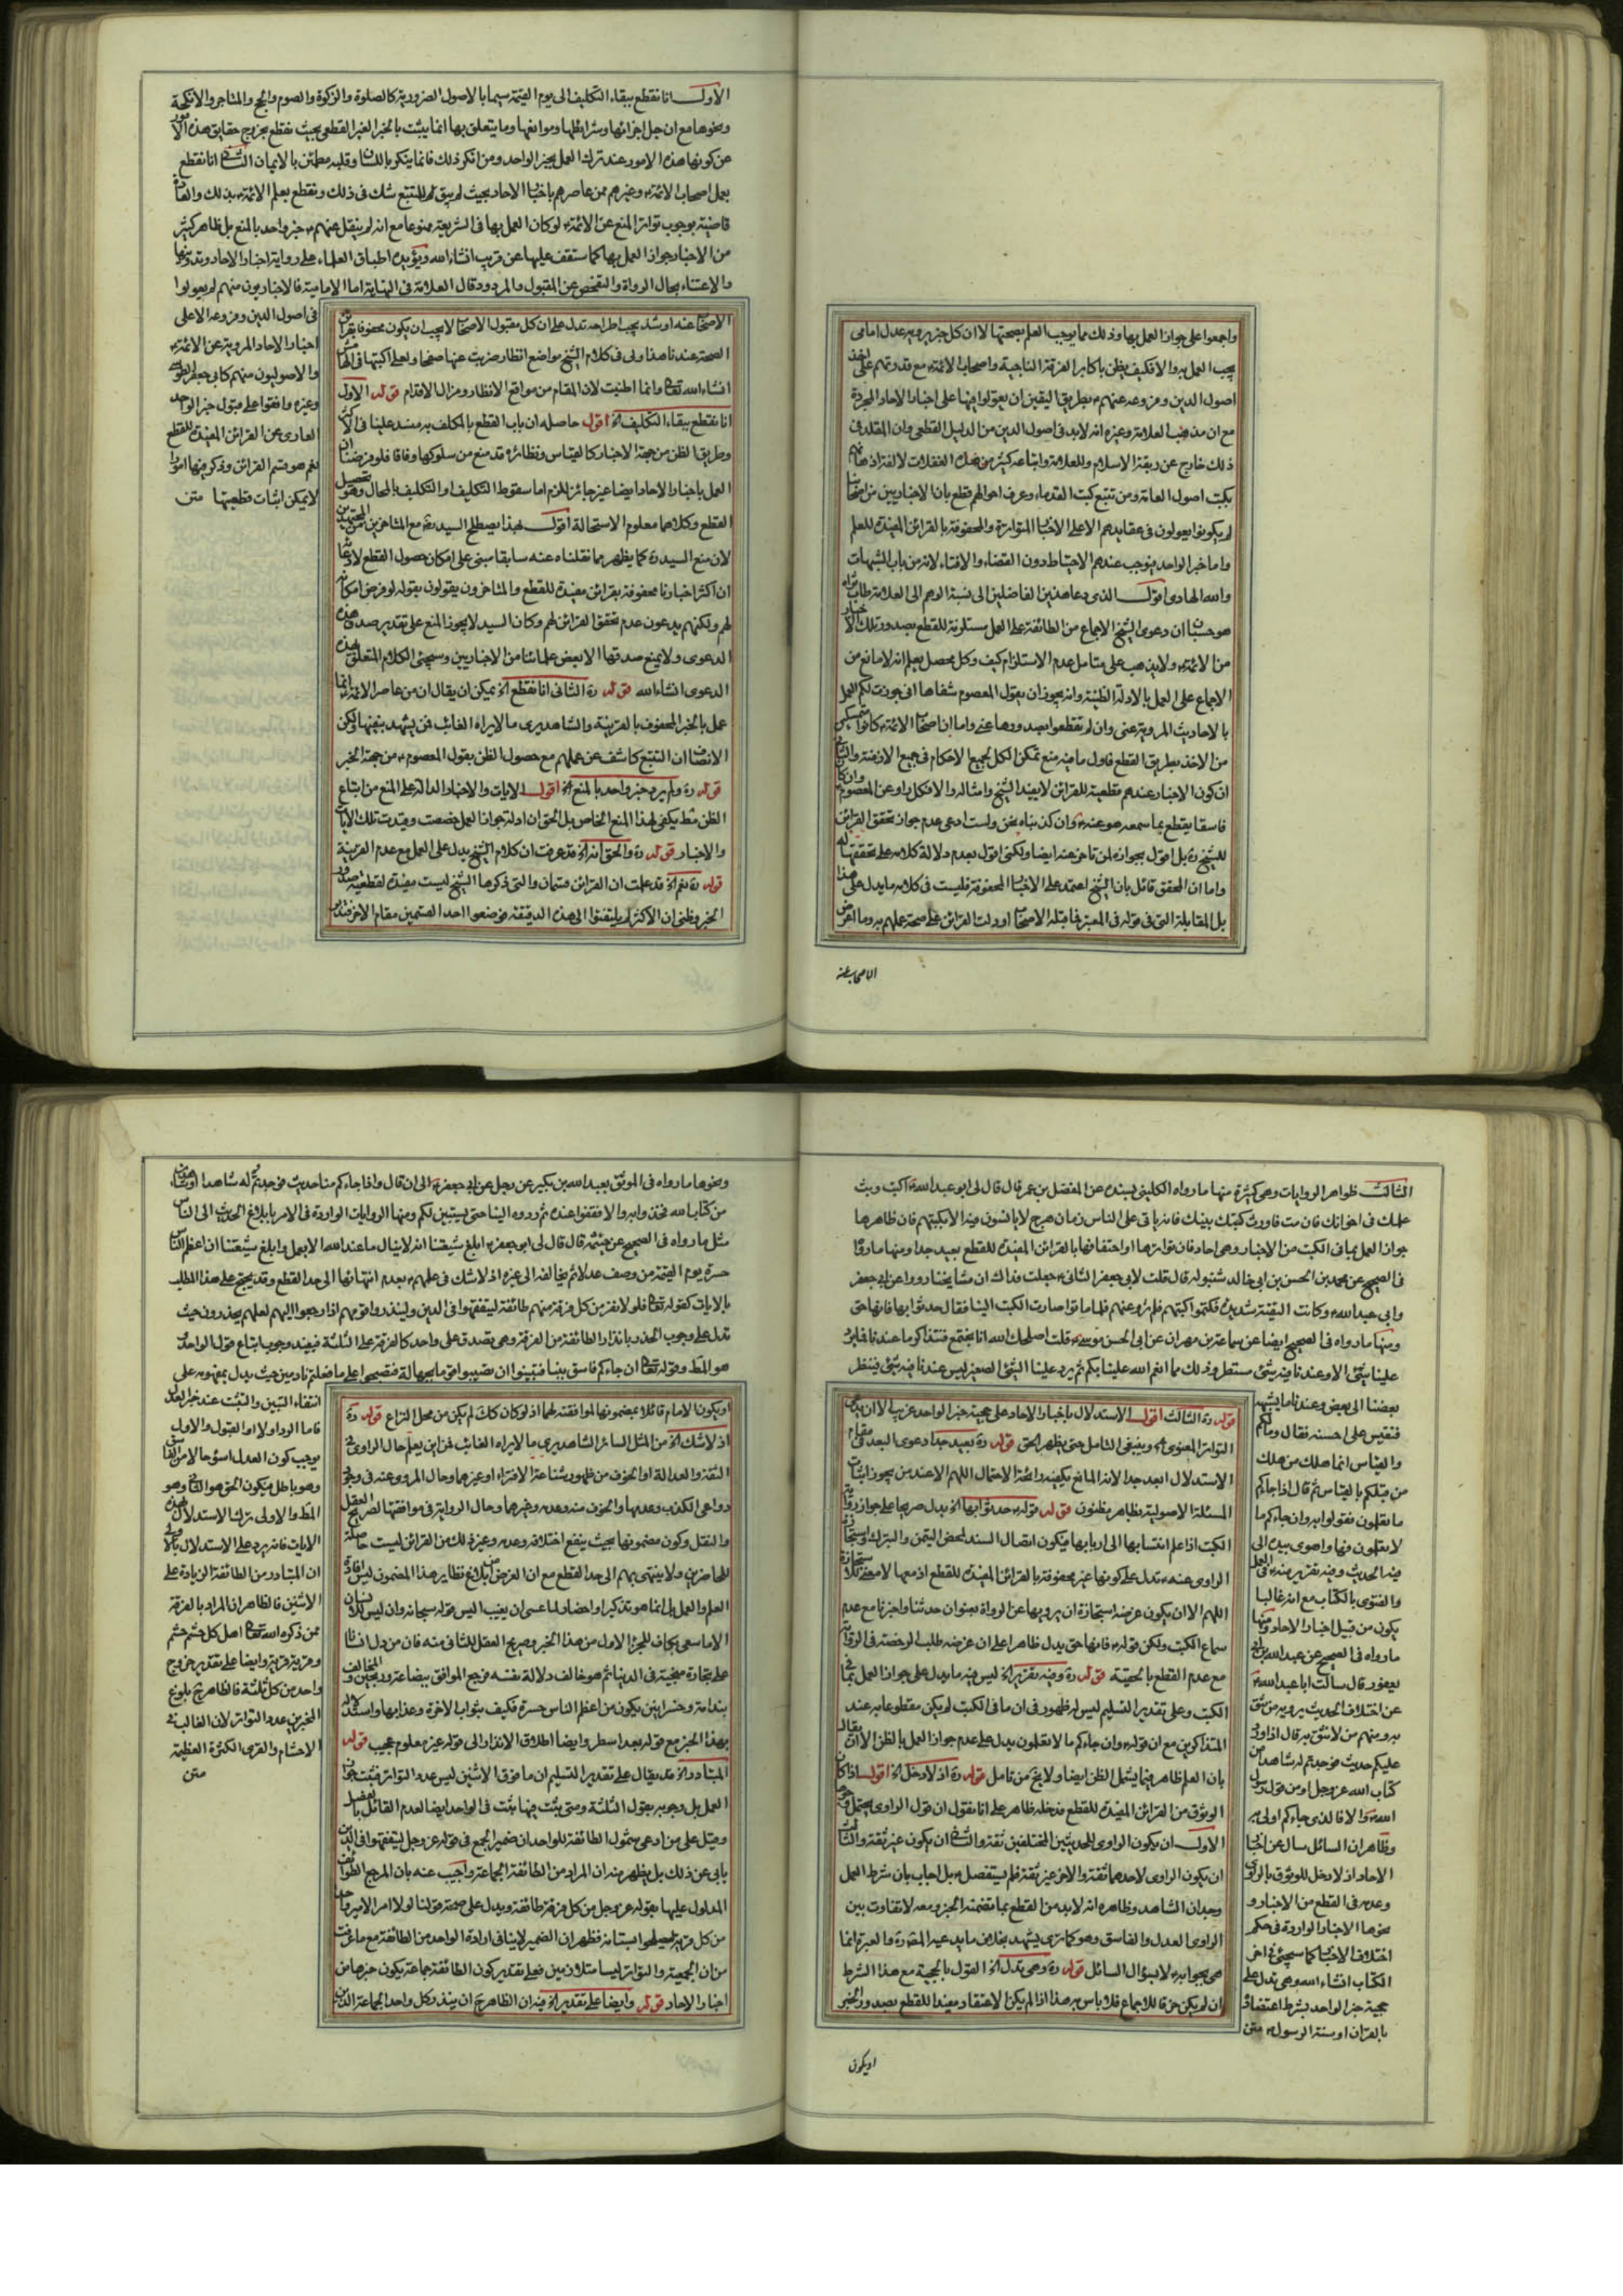 واجمعوا على جواز العمل بها وذلك مما يوجب العلم بصحتها لا ان كل خبر يرويه عدل امامى
يجب العمل به والا فكيف يظن باكابر الفرقة الناجية واصحاب الائمة مع قدرتهم على اخذ
اصول الدين وفروعه عنهم بطريق اليقين ان يعولوا فيها على اخبار الاحاد المجردة
مع ان مذهب العلامة وغيره انه لابد فى اصول الدين من الدليل القطعى وان المقلد فى
ذلك خارج عن ربقة الاسلام وللعلامة واتباعه كثير من هذه الغفلات لالفة اذهانهم
بكتب اصول العامة ومن تتبع كتب القدماء وعرف احوالهم قطع بان الاخباريين من اصحابنا
لم يكونوا يعولون فى عقايدهم الا على الاخبار المتواترة والمحفوفة بالقرائن المفيدة للعلم
واما خبر الواحد فيوجب عندهم الاحتياط دون القضاء والافتاء لانه من باب الشبهات
والله الهادى اقول الذى دعا هذين الفاضلين الى نسبة الوهم الى العلامة طاب ثراه
هو حسبان ان دعوى الشيخ الاجماع من الطائفة على العمل مستلزمة للقطع بصدور تلك الاخبار
من الائمة ولا يذهب على متامل عدم الاستلزام كيف وكل محصل يعلم انه لا مانع من
الاجماع على العمل بالادلة الظنية وانه يجوز ان يقول المعصوم شفاها انى جوزت لكم العمل
بالاحاديث المروية عنى وان لم تقطعوا بصدورها عنى واما ان اصحاب الائمة كانوا متمكنين
من الاخذ بطريق القطع فاول ما فيه منع تمكن الكل بجميع الاحكام فى جميع الازمنة والثانى
ان كون الاخبار عندهم قطعية للقرائن لا يفيد الشيخ وامثاله والا فكل راو عن المعصوم وان كان
فاسقا يقطع بما سمعه هو عنه وان كذبناه نحن ولست ادعى عدم جواز تحقق القرائن
للشيخ ره بل اقول بجوازه لمن تاخر عنه ايضا ولكنى اقول بعدم دلالة كلامه على تحققها له
واما ان المحقق قائل بان الشيخ اعتمد على الاخبار المحفوفة فليست فى كلامه ما يدل على هذا
بل المقابلة التى فى قوله فى المعتبر فما قبله الاصحاب او دلت القرائن على صحته عمل به وما اعرض
الاصحاب عنه
الاول انا نقطع ببقاء التكليف الى يوم القيمة سيما بالاصول الضرورية كالصلوة والزكوة والصوم والحج والمتاجر والانكحة
ونحوها مع ان جل اجزائها وشرائطها وموانعها وما يتعلق بها انما يثبت بالخبر الغير القطعى بحيث نقطع بخروج حقايق هذه الامور
عن كونها هذه الامور عند ترك العمل بخبر الواحد ومن انكر ذلك فانما ينكر باللسان وقلبه مطمئن بالايمان الثانى انا نقطع
بعمل اصحاب الائمة وغيرهم ممن عاصرهم باخبار الاحاد بحيث لم يبق للمتتبع شك فى ذلك ونقطع بعلم الائمة بذلك والعادة
قاضية بوجوب تواتر المنع عن الائمة لو كان العمل بها فى الشريعة ممنوعا مع انه لم ينقل عنهم خبر واحد بالمنع بل ظاهر كثير
من الاخبار جواز العمل بها كما ستقف عليها عن قريب انشاء الله ويؤيده اطباق العلماء على رواية اخبار الاحاد وتدوينها
والاعتناء بحال الرواة والتفحص عن المقبول والمردود قال العلامة فى النهاية اما الامامية فالاخباريون منهم لم يعولوا
فى اصول الدين وفروعه الا على
اخبار الاحاد المروية عن الائمة
والاصوليون منهم كابى جعفر الطوسى
وغيره وافقوا على قبول خبر الواحد
العارى عن القرائن المفيدة للقطع
نعم هو قسم القرائن وذكر فيها امورا
لا يمكن اثبات قطعيتها متن
الاصحاب عنه او شذ يجب اطراحه تدل على ان كل مقبول الاصحاب لا يجب ان يكون محفوفا بقرائن
الصحة عند هذا ولى فى كلام الشيخ مواضع انظار ضربت عنها صفحا ولعلى اكتبها فى الهامش
انشاء الله تعالى وانما اطنبت لان المقام من مواقع الانظار ومزال الاقدام قوله الاول
انا نقطع ببقاء التكليف الخ اقول حاصله ان باب القطع بالمكلف به منسد علينا فى الاكثر
وطريق الظن من جهة الاخبار كالقياس ونظائره قد منع من سلوكها وفاقا فلو فرضنا ان
العمل باخبار الاحاد ايضا غير جائز للزم اما سقوط التكليف او التكليف بالمحال وهو تحصيل
القطع وكلاهما معلوم الاستحالة اقول لهذا يصطلح السيد ره مع المتاخرين من المجتهدين
لان منع السيد ره كما يظهر مما نقلناه عنه سابقا مبنى على امكان حصول القطع لادعائه
ان اكثر اخبارنا محفوفة بقرائن مفيدة للقطع والمتاخرون يقولون بقوله لو فرض امكانه
لهم ولكنهم يدعون عدم تحقق القرائن لهم وكان السيد لا يجوز المنع على تقدير صدق هذه
الدعوى ولا يمنع صدقها الا بعض علمائنا من الاخباريين وسيجئ الكلام المتعلق بهذه
الدعوى انشاء الله قوله ره الثانى انا نقطع الخ يمكن ان يقال ان من عاصر الائمة انما
عمل بالخبر المحفوف بالقرينة والشاهد يرى ما لا يراه الغائب فمن يشهد بنفيها ولكن
الانصاف ان التتبع كاشف عن عملهم مع حصول الظن بقول المعصوم من جهة الخبر
قوله ره ولم يرد خبر واحد بالمنع الخ اقول الايات والاخبار الدالة على المنع من اتباع
الظن مثلا يكفى لهذا المنع الخاص بل الحق ان ادلة جواز العمل خصصت وقيدت تلك الايات
والاخبار قوله ره والحق انه الخ قد عرفت ان كلام الشيخ يدل على العمل مع عدم القرينة
قوله ره نعم الخ قد علمت ان القرائن قسمان والتى ذكرها الشيخ ليست مفيدة لقطعية صدور
الخبر وظنى ان الاكثر لم يلتفتوا الى هذه الدقيقة فوضعوا احد القسمين مقام الاخر فتدبر
الثالث ظواهر الروايات وهى كثيرة منها ما رواه الكلينى بسنده عن المفضل بن عمر قال قال لى ابو عبد الله اكتب وبث
علمك فى اخوانك فان مت فاورث كتبك بنيك فانه ياتى على الناس زمان هرج لا يانسون فيه الا بكتبهم فان ظاهرها
جواز العمل بما فى الكتب من الاخبار وهى احاد فان تواترها او احتفافها بالقرائن المفيدة للقطع بعيد جدا ومنها ما روى
فى الصحيح عن محمد بن الحسن بن ابى خالد شنبوله قال قلت لابى جعفر الثانى جعلت فداك ان مشايخنا رووا عن ابى جعفر
وابى عبد الله وكانت التقية شديدة فكتموا كتبهم فلم ترو عنهم فلما ماتوا صارت الكتب الينا فقال حدثوا بها فانها حق
ومنها ما رواه فى الصحيح ايضا عن سماعة بن مهران عن ابى الحسن موسى قلت اصلحك الله انا نجتمع فنتذاكر ما عندنا فلا يرد
علينا شئ الا وعندنا فيه شئ مستطر وذلك مما انعم الله علينا بكم ثم يرد علينا الشئ الصغير ليس عندنا فيه شئ فينظر
بعضنا الى بعض وعندنا ما يشبهه
فنقيس على احسنه فقال وما لكم
والقياس انما هلك من هلك
من قبلكم بالقياس ثم قال اذا جاءكم
ما تعلمون فقولوا به وان جاءكم ما
لا تعلمون فها واهوى بيده الى
فيه الحديث وفيه تقرير منه فى العمل
والفتوى بالكتاب مع انه غالبا
يكون من قبيل اخبار الاحاد ومنها
ما رواه فى الصحيح عن عبد الله بن ابى
يعفور قال سالت ابا عبد الله
عن اختلاف الحديث يرويه من نثق
به ومنهم من لا نثق به قال اذا ورد
عليكم حديث فوجدتم له شاهدا من
كتاب الله عز وجل او من قول رسول
الله والا فالذى جاءكم اولى به
وظاهر ان السائل سال عن اخبار
الاحاد اذ لا دخل للوثوق بالراوى
وعدمه فى القطع من الاخبار و
نحوها الاخبار الواردة فى حكم
اختلاف الاخبار كما سيجئ فى اخر
الكتاب انشاء الله وهى تدل على
حجية خبر الواحد بشرط اعتضاده
بالقران او سنة الرسول متن
قوله ره الثالث اقول الاستدلال باخبار الاحاد على حجية خبر الواحد غريب الا ان يدعى
التواتر المعنوى وينبغى التامل حتى يظهر الحق قوله ره بعيد جدا دعوى البعد فى مقام
الاستدلال ابعد جدا لانه المانع يكفيه رائحة الاحتمال اللهم الا عند من يجوز اثبات
المسئلة الاصولية بظاهر مظنون قوله قوله حدثوا بها الخ يدل صريحا على جواز رواية
الكتب اذا علم انتسابها الى اربابها فيكون اتصال السند لمحض التيمن والتبرك واستجازة
الراوى عنه تدل على كونها غير محفوفة بالقرائن المفيدة للقطع اذ معها لا معنى للاستجازة
اللهم الا ان يكون غرضه استجازة ان يرويها عن الرواة بعنوان حدثنا واخبرنا مع عدم
سماع الكتب ولكن قوله فانها حق يدل ظاهرا على ان غرضه طلب الرخصة فى الرواية
مع عدم القطع بالحقية قوله ره وفيه تقرير الخ ليس فيه ما يدل على جواز العمل بما فى
الكتب وعلى تقدير التسليم ليس له ظهور فى ان ما فى الكتب لم يكن مقطوعا به عند
المتذاكرين مع ان قوله وان جاءكم ما لا تعلمون يدل على عدم جواز العمل بالظن الا ان يقال
بان العلم ظاهر فيما يشمل الظن ايضا ولا يخ من تامل قوله ره اذ لا دخل الخ اقول اذا كان
الوثوق من القرائن المفيدة للقطع فدخله ظاهر على انا نقول ان قول الراوى يحتمل وجوها
الاول ان يكون الراوى للحديثين المختلفين ثقة والثانى ان يكون غير ثقة والثالث
ان يكون الراوى لاحدهما ثقة والاخر غير ثقة فلم يستفصل بل اجاب بان شرط العمل
وجدان الشاهد وظاهره انه لابد من القطع بما تضمنه الخبر ومعه لا تفاوت بين
الراوى العدل والفاسق وهو كما ترى يشهد بخلاف ما يدعيه المصنف ره والعبرة انما
هى بجوابه لا بسؤال السائل قوله ره وهى تدل الخ القول بالحجية مع هذا الشرط
ان لم يكن خرقا للاجماع فلا باس به هذا اذا لم يكن الاعتضاد مفيدا للقطع بصدور الخبر
او يكون
ونحوها ما رواه فى الموثق بعبد الله بن بكير عن رجل عن ابى جعفر الى ان قال واذا جاءكم منا حديث فوجدتم له شاهدا او شاهدين
من كتاب الله فخذوا به والا فقفوا عنده ثم ردوه الينا حتى يستبين لكم ومنها الروايات الواردة فى الامر بابلاغ الحديث الى الناس
مثل ما رواه فى الصحيح عن خيثمة قال قال لى ابو جعفر ابلغ شيعتنا انه لا ينال ما عند الله الا بعمل وابلغ شيعتنا ان اعظم الناس
حسرة يوم القيمة من وصف عدلا ثم يخالفه الى غيره اذ لا شك فى علمهم بعدم انتهائها الى حد القطع وقد يحتج على هذا المطلب
بالايات كقوله تعالى فلولا نفر من كل فرقة منهم طائفة ليتفقهوا فى الدين ولينذروا قومهم اذا رجعوا اليهم لعلهم يحذرون حيث
تدل على وجوب الحذر بانذار الطائفة من الفرقة وهى تصدق على واحد كالفرقة على الثلثة فيفيد وجوب اتباع قول الواحد
هو المط وقوله تعالى ان جاءكم فاسق بنبا فتبينوا ان تصيبوا قوما بجهالة فتصبحوا على ما فعلتم نادمين حيث يدل بمفهومه على
انتفاء التبين والتثبت عند خبر العدل
فاما الرد اولا او القبول والاول
يوجب كون العدل اسوء حالا من الفاسق
وهو باطل فيكون الحق هو الثانى وهو
المط والاولى ترك الاستدلال بهذه
الايات فانه يرد على الاستدلال بالاولى
ان المتبادر من الطائفة الزيادة على
الاثنين فالظاهر ان المراد بالفرقة
ممن ذكره الله تعالى اهل كل قسم قسم
وقرية قرية وايضا على تقدير خروج
واحد من كل ثلثة فالظاهر بلوغ
المخبرين عدد التواتر لان الغالب فى
الاحشام والقرى الكثرة العظيمة
متن
او يكون الامام قائلا بمضمونها لموافقته لهما اذ لو كان كك لم يكن من محل النزاع قوله ره
اذ لا شك الخ من المثل السائر الشاهد يرى ما لا يراه الغائب فمن اين يعلم حال الراوى فى
الثقة والعدالة او الخوف من ظهور شناعة الافتراء او غيرهما وحال المروى عنه فى وجود
دواعى الكذب وعدمها والخوف منه وعدمه وغيرهما وحال الرواية فى موافقتها لصريح العقل
والنقل وكون مضمونها بحيث يقع اختلافه وعدمه وغير ذلك من القرائن ليست حاصلة
للحاضرين ولا ينتهى بهم الى حد القطع مع ان الغرض من ابلاغ نظاير هذا المضمون ليس افادة
العلم والعمل بل انما هو تذكير واحضار لما عسى ان يغيب اليس قوله سبحانه وان ليس للانسان
الا ما سعى بكاف للجزء الاول من هذا الخبر وصريح العقل للثانى منه فان من دل انسانا
على تجارة منجية فى الدنيا ثم هو خالف دلالة نفسه فربح الموافق بضاعة وربحين والمخالف
بندامة وخسرانين يكون من اعظم الناس حسرة فكيف بثواب الاخرة وعذابها واستدلاله
بهذا الخبر مع قوله بعد اسطر وايضا اطلاق الانذار الى قوله غير معلوم عجيب قوله
المتبادر الخ قد يقال على تقدير التسليم ان ما فوق الاثنين ليس عدد التواتر فيثبت جواز
العمل بل وجوبه بقول الثلثة ومتى يثبت فيها يثبت فى الواحد ايضا لعدم القائل بالفصل
وقيل على من ادعى شمول الطائفة للواحد ان ضمير الجمع فى قوله عز وجل ليتفقهوا فى الدين
يابى عن ذلك بل يظهر منه ان المراد من الطائفة الجماعة واجيب عنه بان المرجع الطوائف
المدلول عليها بقوله عز وجل من كل فرقة طائفة ويدل على صحته قولنا لولا امر الامير واحدا
من كل قرية ليعملوا بستانه فظهر ان الضمير لا ينافى ارادة الواحد من الطائفة مع ما عرفت
من ان الجمعية والتواتر ليسا متلازمين فعلى تقدير كون الطائفة جماعة يكون خبرها من
اخبار الاحاد قوله وايضا على تقدير الخ فيه ان الظاهر ح ان ينذر كل واحد الجماعة الذين